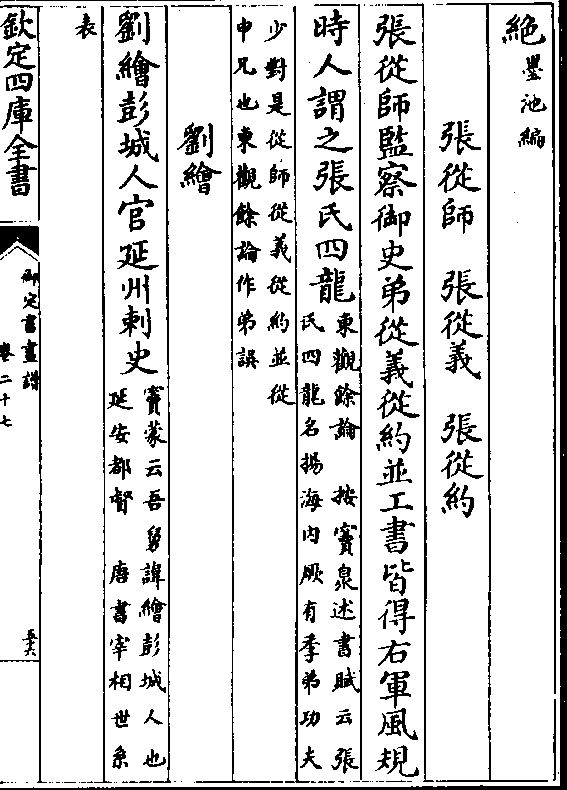 絶墨池編
張從師　張從義　張從約
張從師監察御史弟從義從約並工書皆得右軍風規
時人謂之張氏四龍東觀餘論　按竇臮述書賦云張
氏四龍名揚海内厥有季弟功夫
少對是從師從義從約並從
申兄也東觀餘論作弟誤
劉繪
劉繪彭城人官延州刺史竇蒙云吾舅諱繪彭城人也
延安都督　唐書宰相世系
表
欽定四庫全書
御定書畫譜
卷二十七